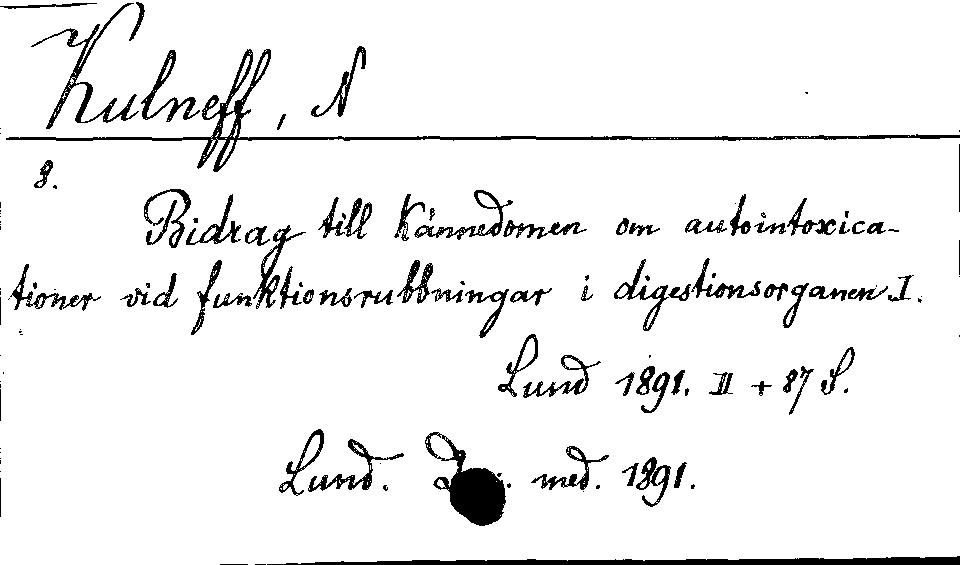 Kulneff, N
8.
Bidrag till Kännedomen om autointoxica-
tioner vid funktionsrubbningar i digestionsorganen. I.
Lund 1891. II + 87 S.
Lund. med. 1891.